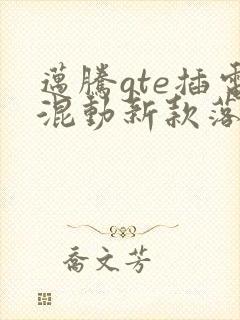 邁騰gte插電
混動新款落
喬文芳